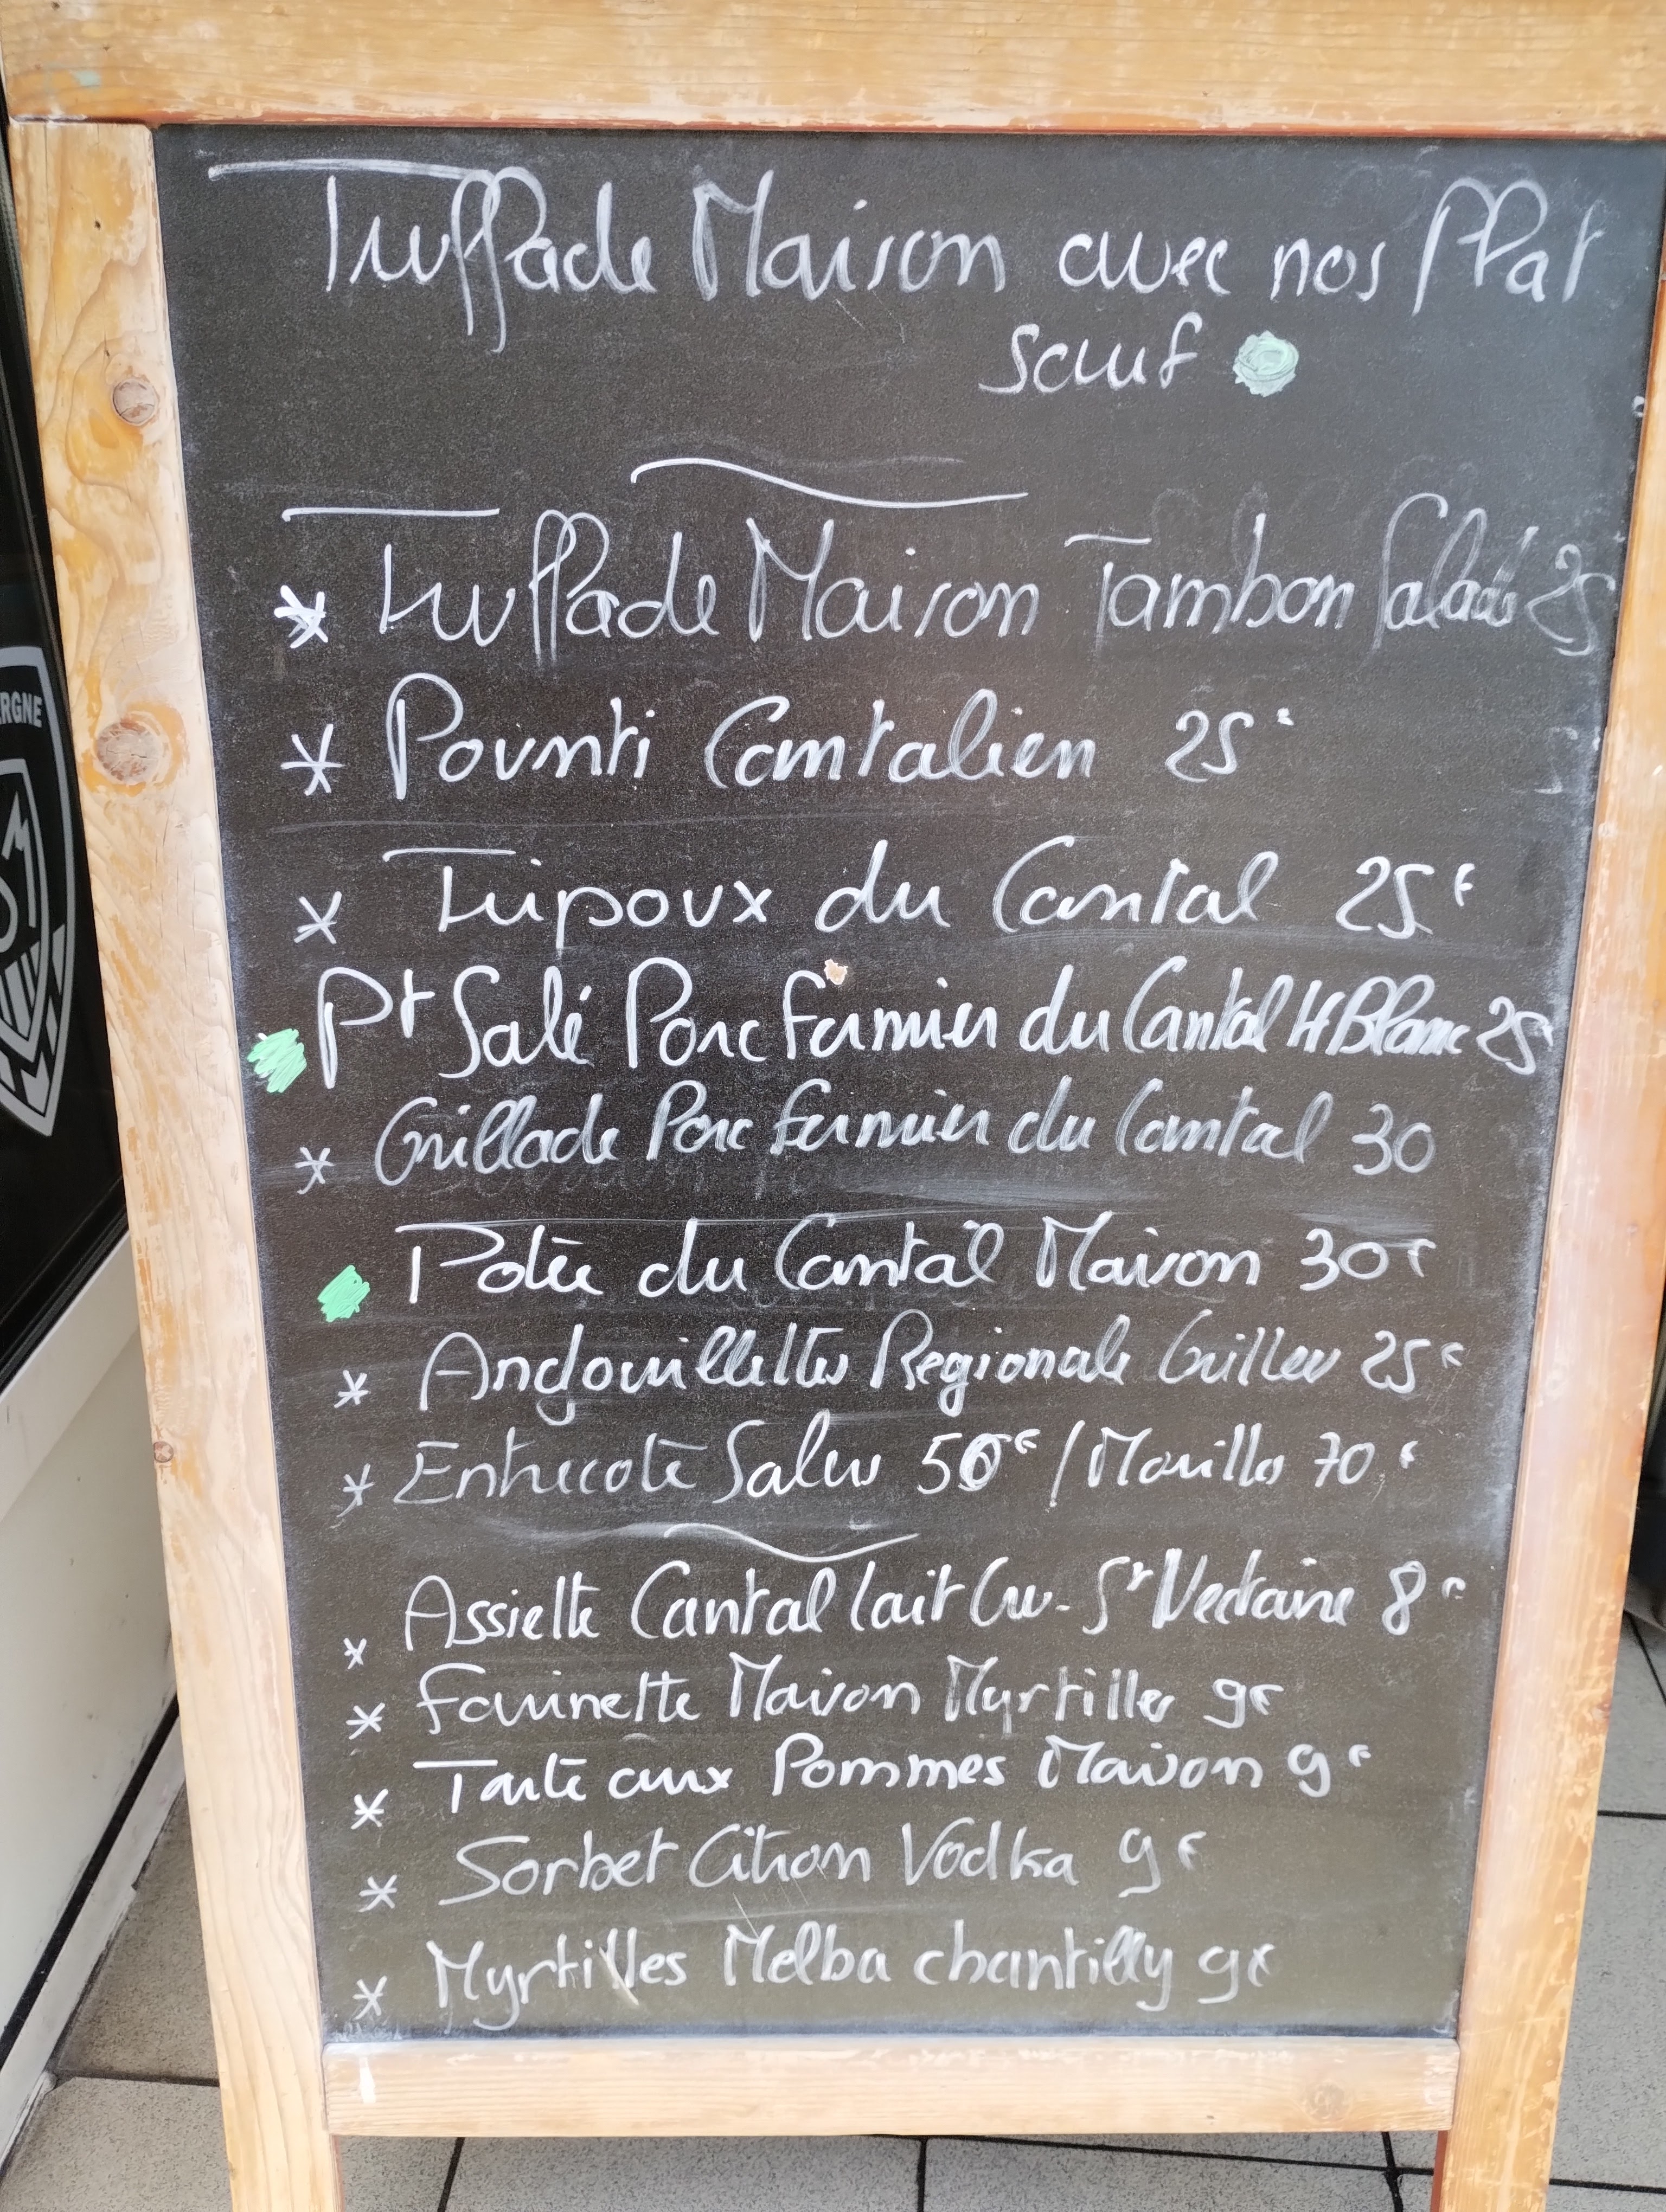 Truffade Maison avec nos Plat
sauf
Truffade Maison Jambon Salade 25
Pounti Cantalien 25€
Tripoux du Cantal 25€
Pt Salé Porc fermier du Cantal H Blanc 25
Grillade Porc fermier du Cantal 30
Potée du Cantal Maison 30€
Andouillettes Regionale Griller 25€
Entrecote Salers 50€ / Morilles 70€
Assiette Cantal lait Cru - St Nectaire 8€
farinette Maison Myrtilles 9€
Tarte aux Pommes Maison 9€
Sorbet Citron Vodka 9€
Myrtilles Melba chantilly 9€
ERGNE